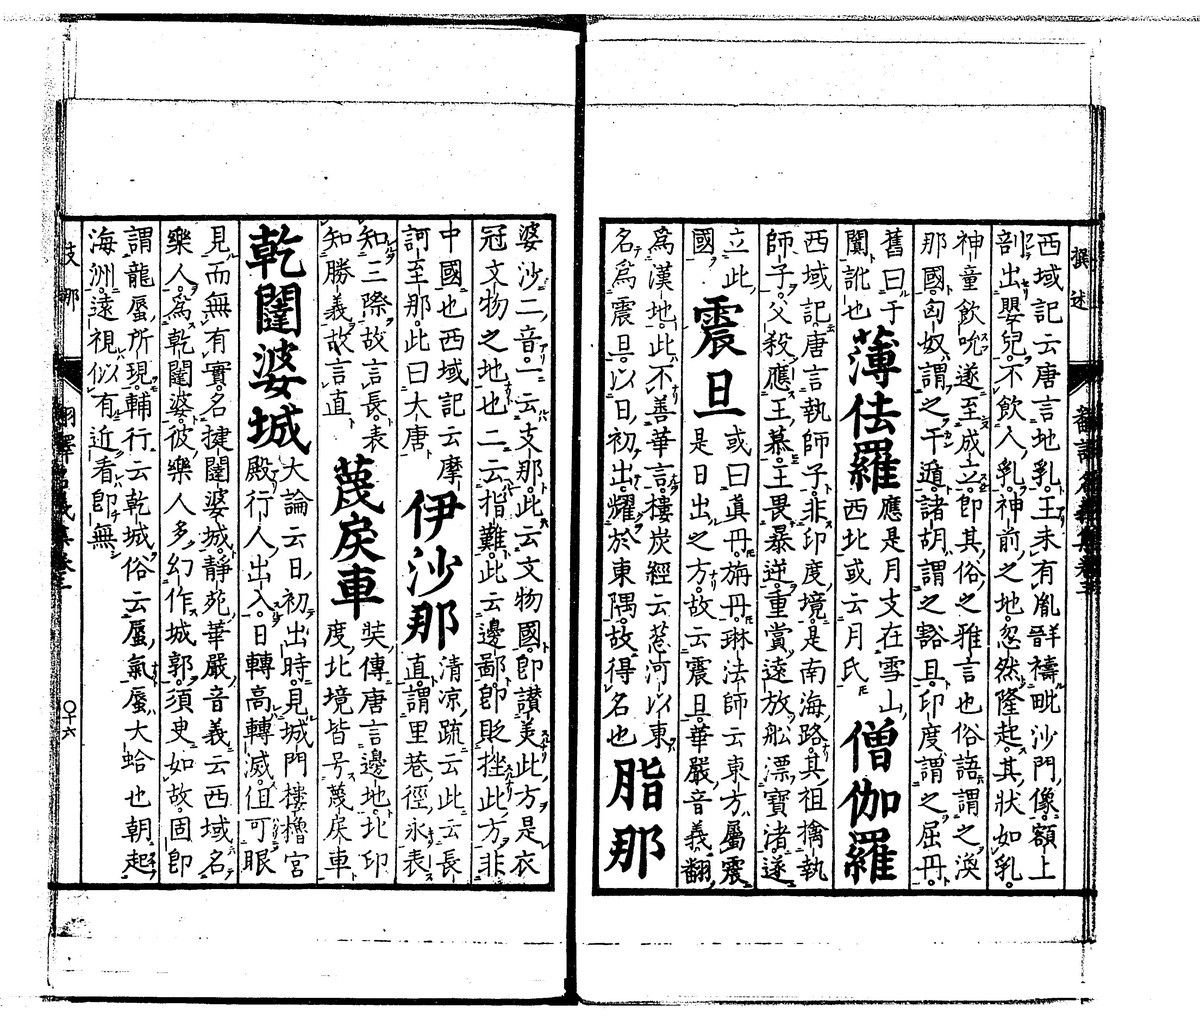 撰述
翻譯名義集卷三
西域記云唐言地乳王未有胤詳禱毗沙門像額上
剖出嬰兒不飲人乳神前之地忽然隆起其狀如乳
神童飲吮遂至成立即其俗之雅言也俗語謂之渙
那國匈奴謂之于遁諸胡謂之豁旦印度謂之屈丹
舊曰于
闐訛也
薄佉羅
應是月支在雪山
西北或云月氏
僧伽羅
西域記唐言執師子非印度境是南海路其祖擒執
師子父殺應王募王畏暴逆重賞遠放船漂寶渚遂
立此
國
震旦
或曰真丹旃丹琳法師云東方屬震
是日出之方故云震旦華嚴音義翻
為漢地此不善華言樓炭經云葱河以東
名為震旦以日初出耀於東隅故得名也
脂那
婆沙二音一云支那此云文物國即讃美此方是衣
冠文物之地也二云指難此云邊鄙即貶挫此方非
中國也西域記云摩
訶至那此曰大唐
伊沙那
清凉疏云此云長
直謂里巷徑永表
知三際故言長表
知勝義故言直
蔑戾車
奘傳唐言邊地北印
度北境皆号蔑戾車
乾闥婆城
大論云日初出時見城門樓櫓宮
殿行人出入日轉高轉滅但可眼
見而無有實名揵闥婆城靜苑華嚴音義云西域名
樂人為乾闥婆彼樂人多幻作城郭須臾如故固即
謂龍蜃所現輔行云乾城俗云蜃氣蜃大蛤也朝起
海洲遠視似有近看即無
那
〇十六